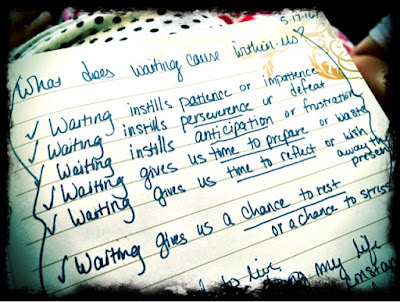 5-17-16
What does waiting cause within us
✓ Waiting instills patience or impatience
✓ Waiting instills perseverence or defeat
Waiting instills anticipation or frustration
✓ Waiting gives us time to prepare or waste
✓ Waiting gives us time to reflect or wish
away the
present
✓ Waiting gives us a chance to rest
or a chance to stress
to live
my life